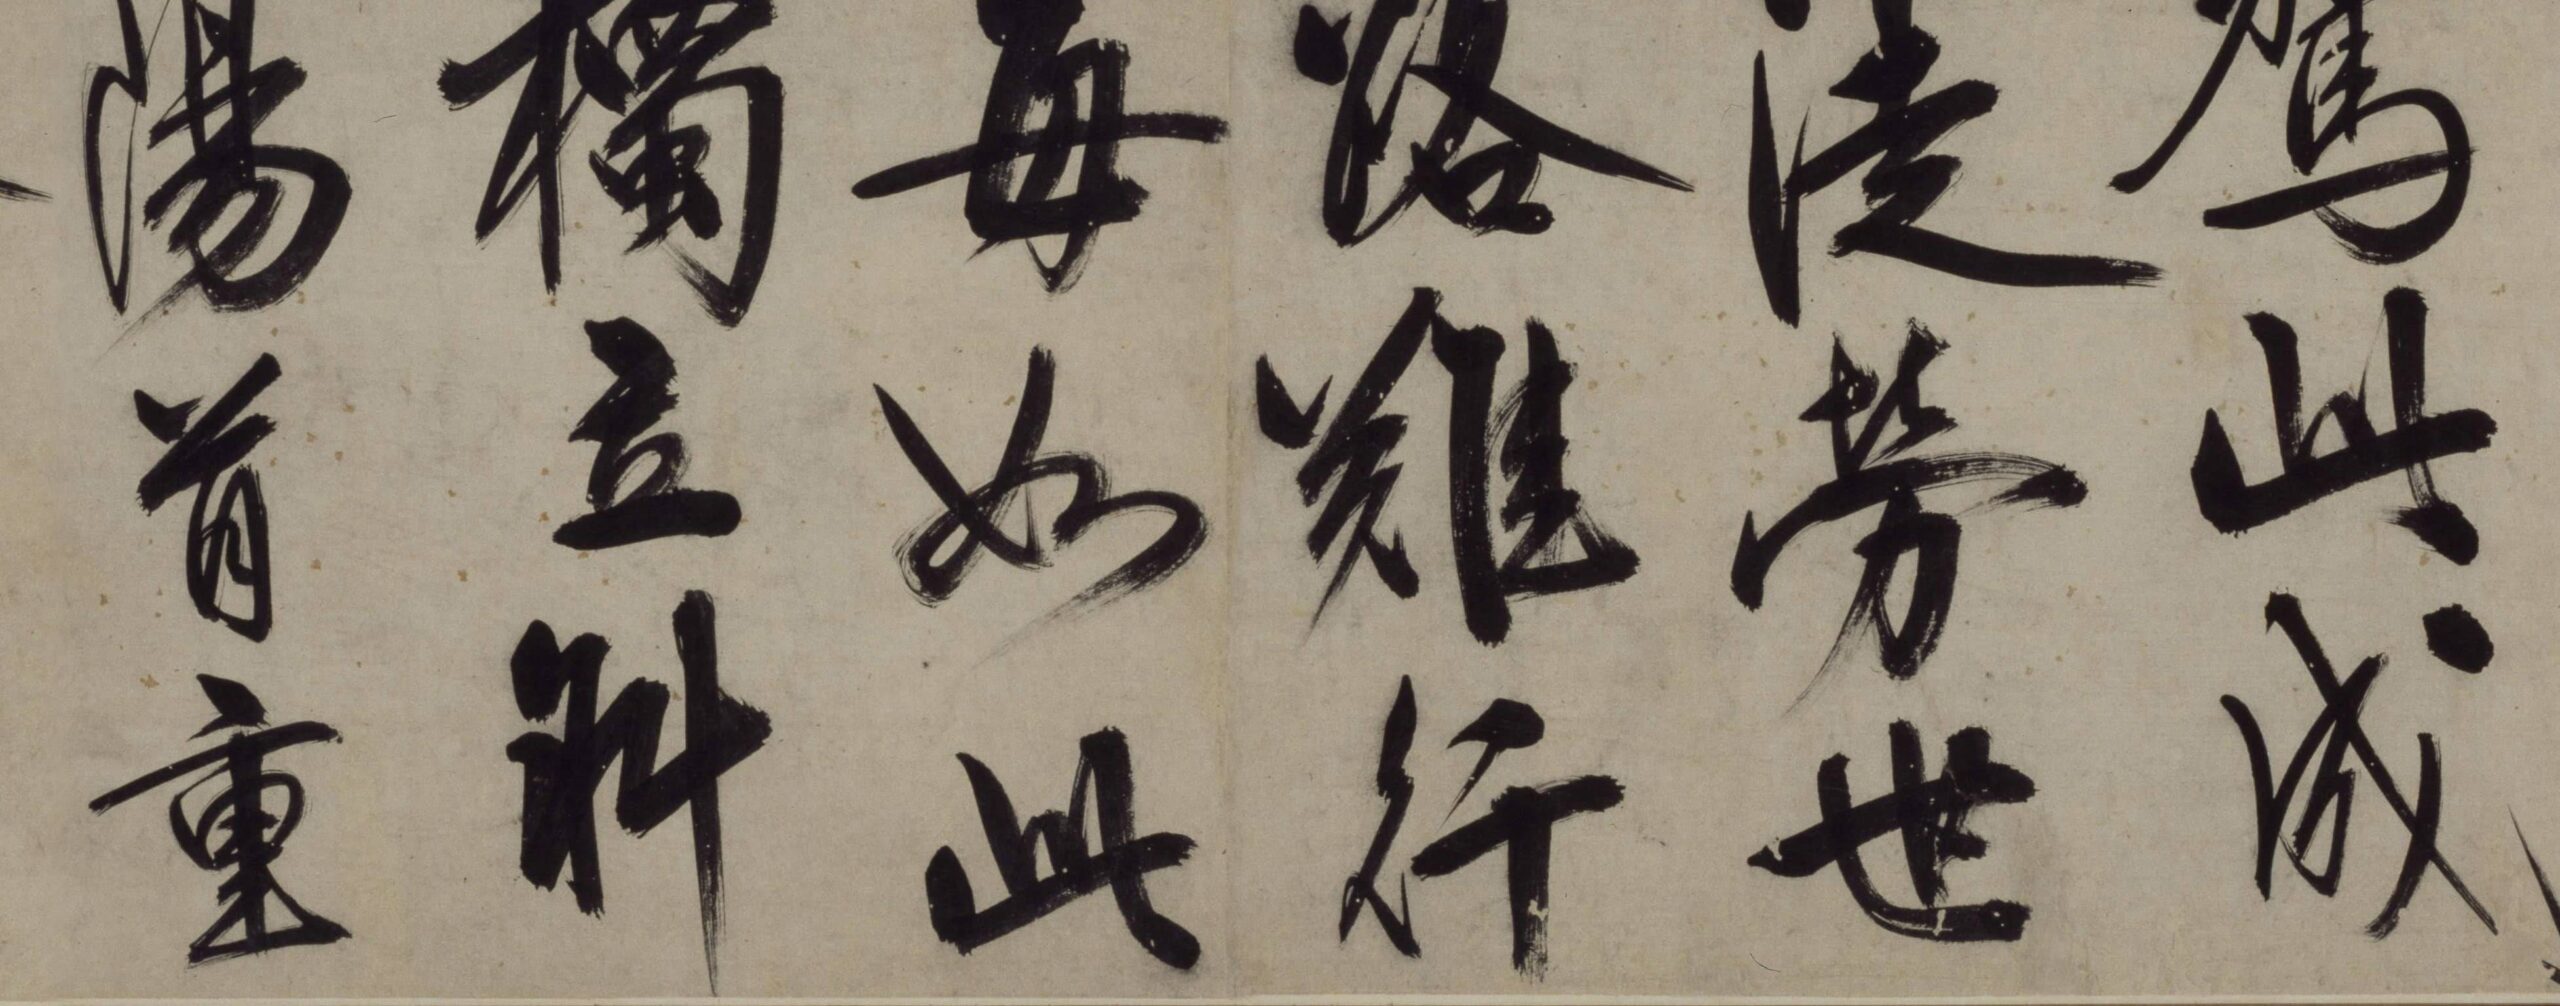 此成
徒勞世
路難行
每如此
獨立斜
陽首重